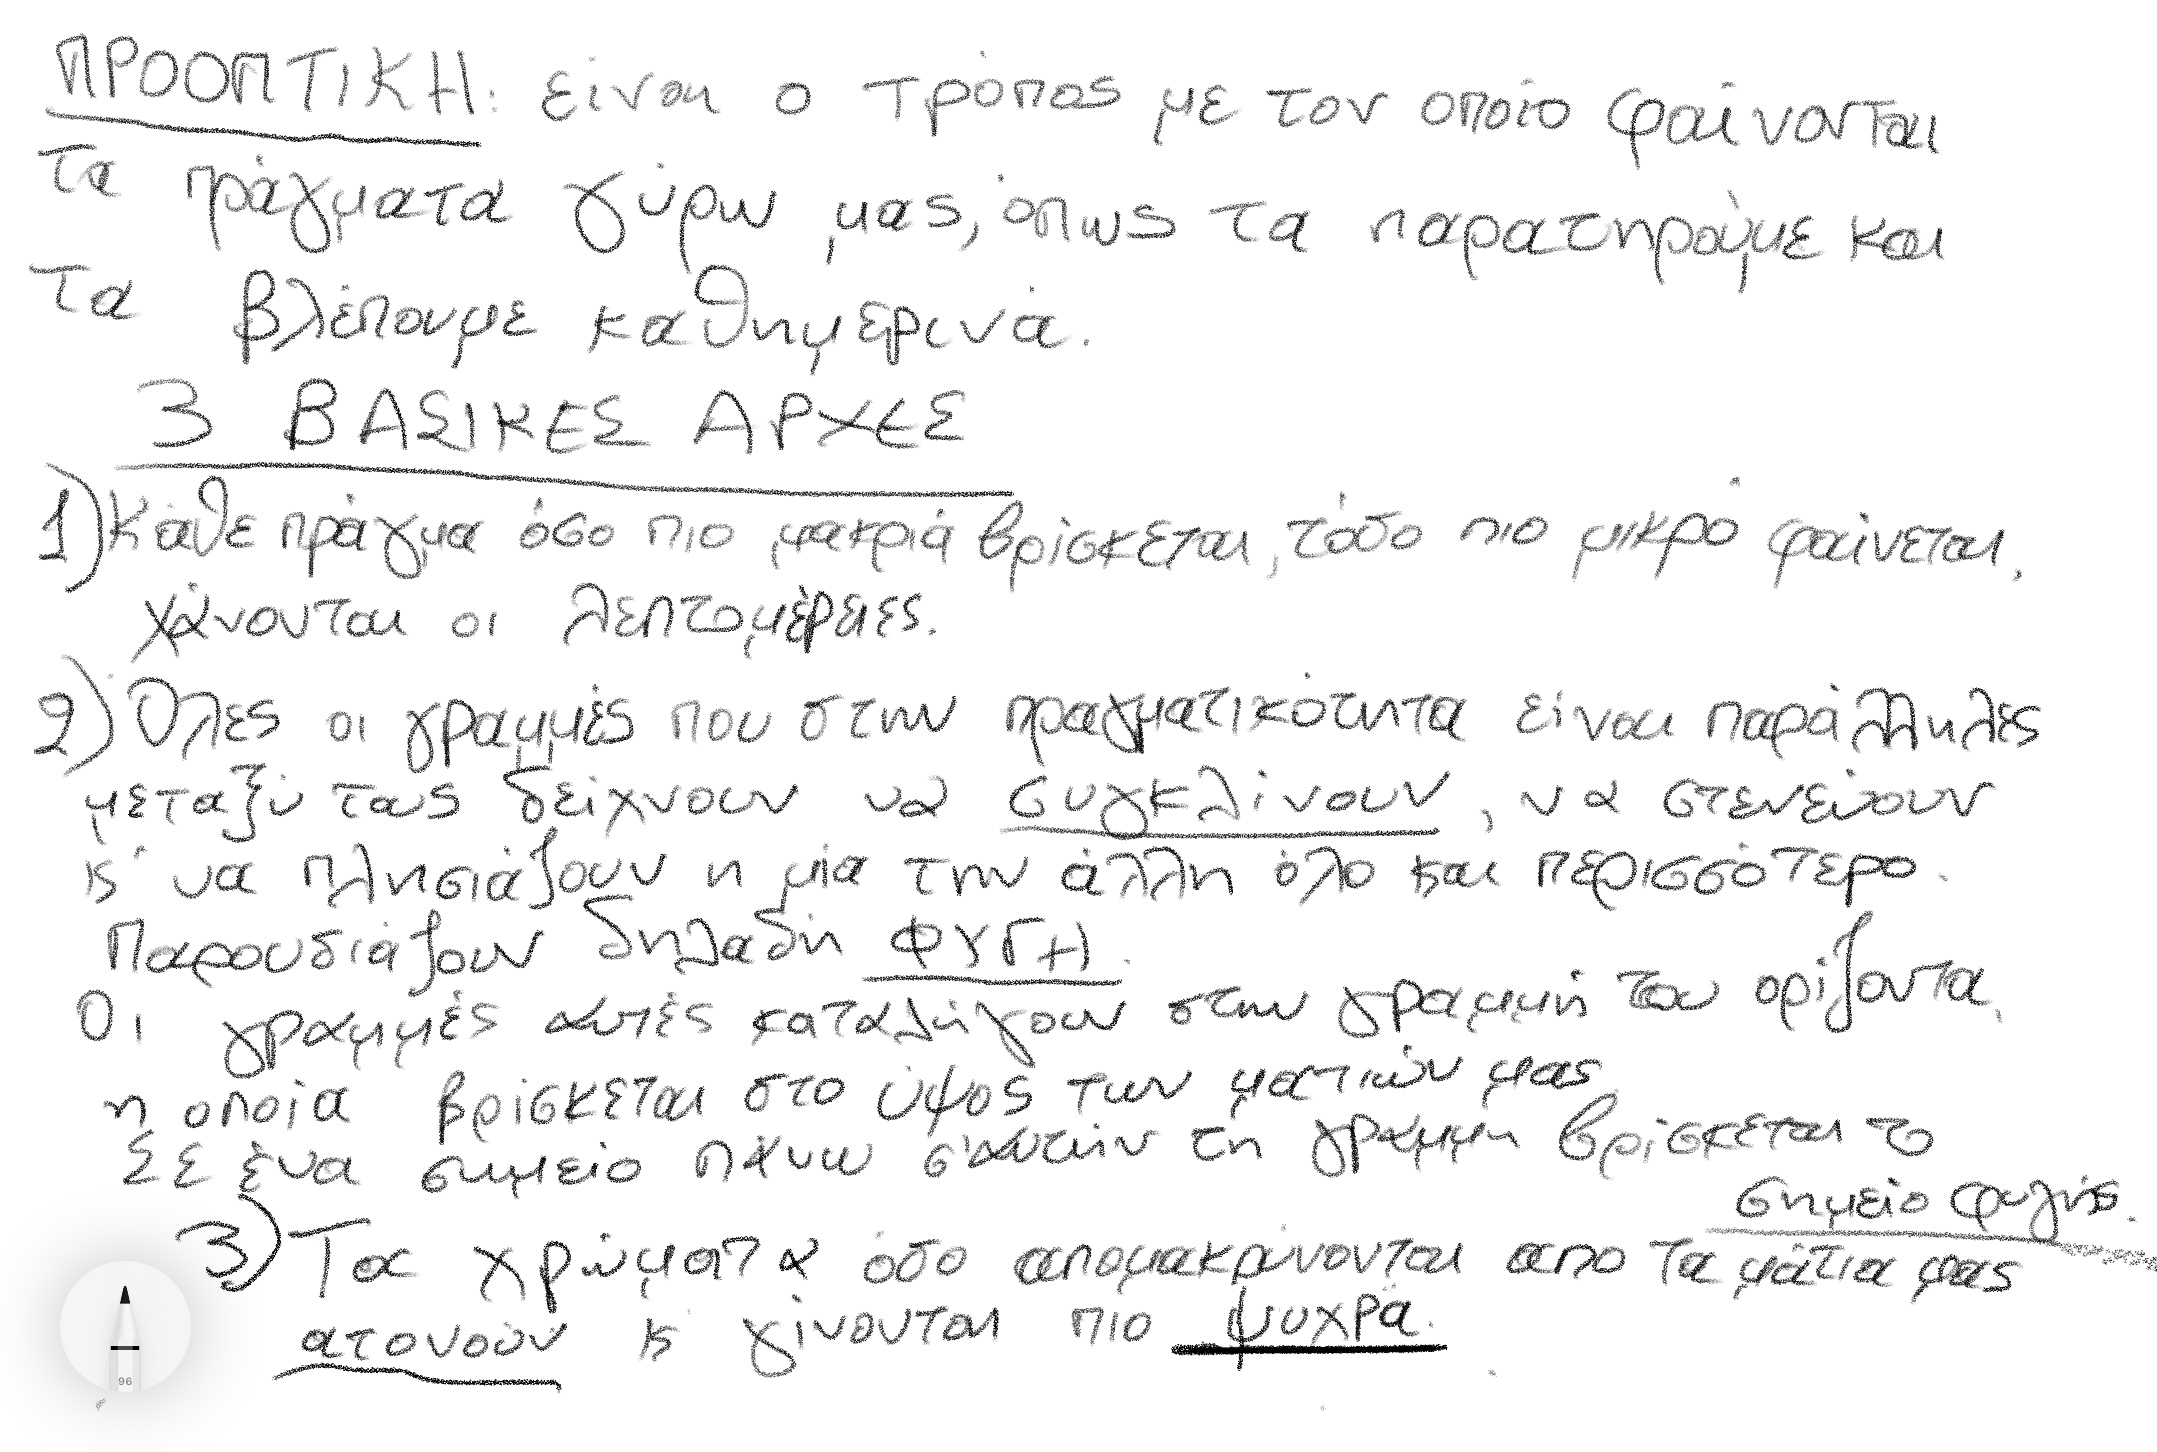 ΠΡΟΟΠΤΙΚΗ: είναι ο τρόπος με τον οποίο φαίνονται
τα πράγματα γύρω μας, όπως τα παρατηρούμε και
τα βλέπουμε καθημερινά.
3 ΒΑΣΙΚΕΣ ΑΡΧΕΣ
1) Κάθε πράγμα όσο πιο μακριά βρίσκεται, τόσο πιο μικρό φαίνεται,
χάνονται οι λεπτομέρειες.
2) Όλες οι γραμμές που στην πραγματικότητα είναι παράλληλες
μεταξύ τους δείχνουν να συγκλίνουν, να στενεύουν
κ' να πλησιάζουν η μία την άλλη όλο και περισσότερο.
Παρουσιάζουν δηλαδή ΦΥΓΗ.
Οι γραμμές αυτές καταλήγουν στην γραμμή του ορίζοντα,
η οποία βρίσκεται στο ύψος των ματιών μας.
Σε ένα σημείο πάνω σ'αυτήν τη γραμμη βρίσκεται το
σημείο φυγής.
3) Τα χρώματα όσο απομακρύνονται απο τα μάτια μας
ατονούν κ γίνονται πιο ψυχρά.
96